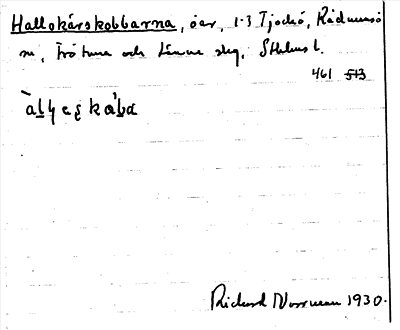 Hallokärskobbarna, öar, 1-3 Tjockö, Rådmansö
sn, Frötuna och Länna slg, Sthlms l.
461 513
Richard Norrman 1930.